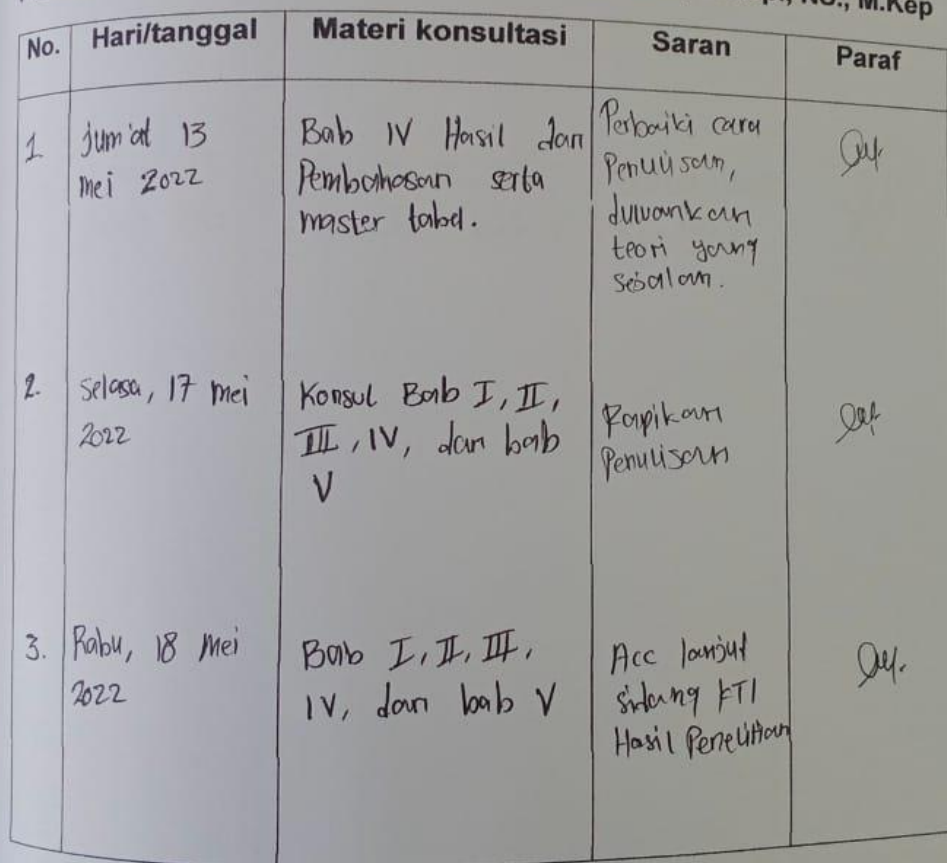 M.Kep
No. Hari/tanggal Materi konsultasi Saran Paraf
1 Jum'at 13
Mei 2022
Bab IV Hasil dan
Pembahasan serta
master tabel.
Perbaiki cara
Penulisan,
teori yang
sejalan.
2. Selasa, 17 Mei
2022
Konsul Bab I, II,
III, IV, dan bab
V
Rapikan
Penulisan
3. Rabu, 18 Mei
2022
Bab I, II, III,
IV, dan bab V
Acc lanjut
sidang KTI
Hasil Penelitian